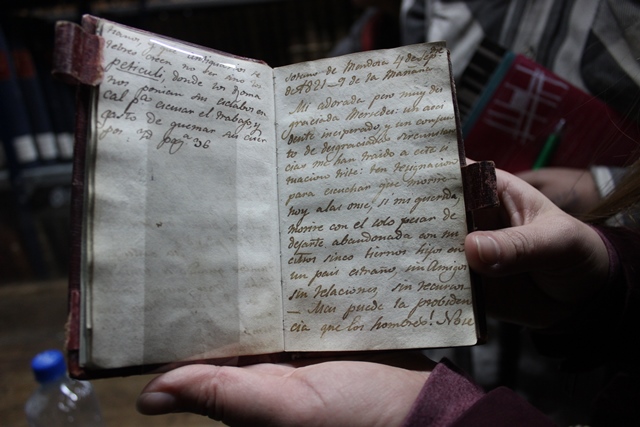 trario, y que antiguarios ce
lebres creen no ser sino un
peticuli, donde los Roma
nos ponian sus esclabos en
cal pa ecsuar el trabajo, y
gasto de quemar su cuer
po: Vd paja 36
Sotano de Mendoza 4 de Sepe
de 1821 – 9 de la Mañana.
Mi adorada pero muy des
graciada Mercedes: un acci
dente inesperado, y un conjun
to de desgraciadas circunstan
cias me han traido a este si
tuacion triste: ten resignacion
para escuchar que morire
hoy a las once; si mi querida,
morire con el solo pesar de
dejarte abandonada con nu
estros cinco tiernos hijos en
un pais estraño, sin Amigos
sin relaciones, sin recursos.
— Mas puede la probiden
cia que los hombres! No se